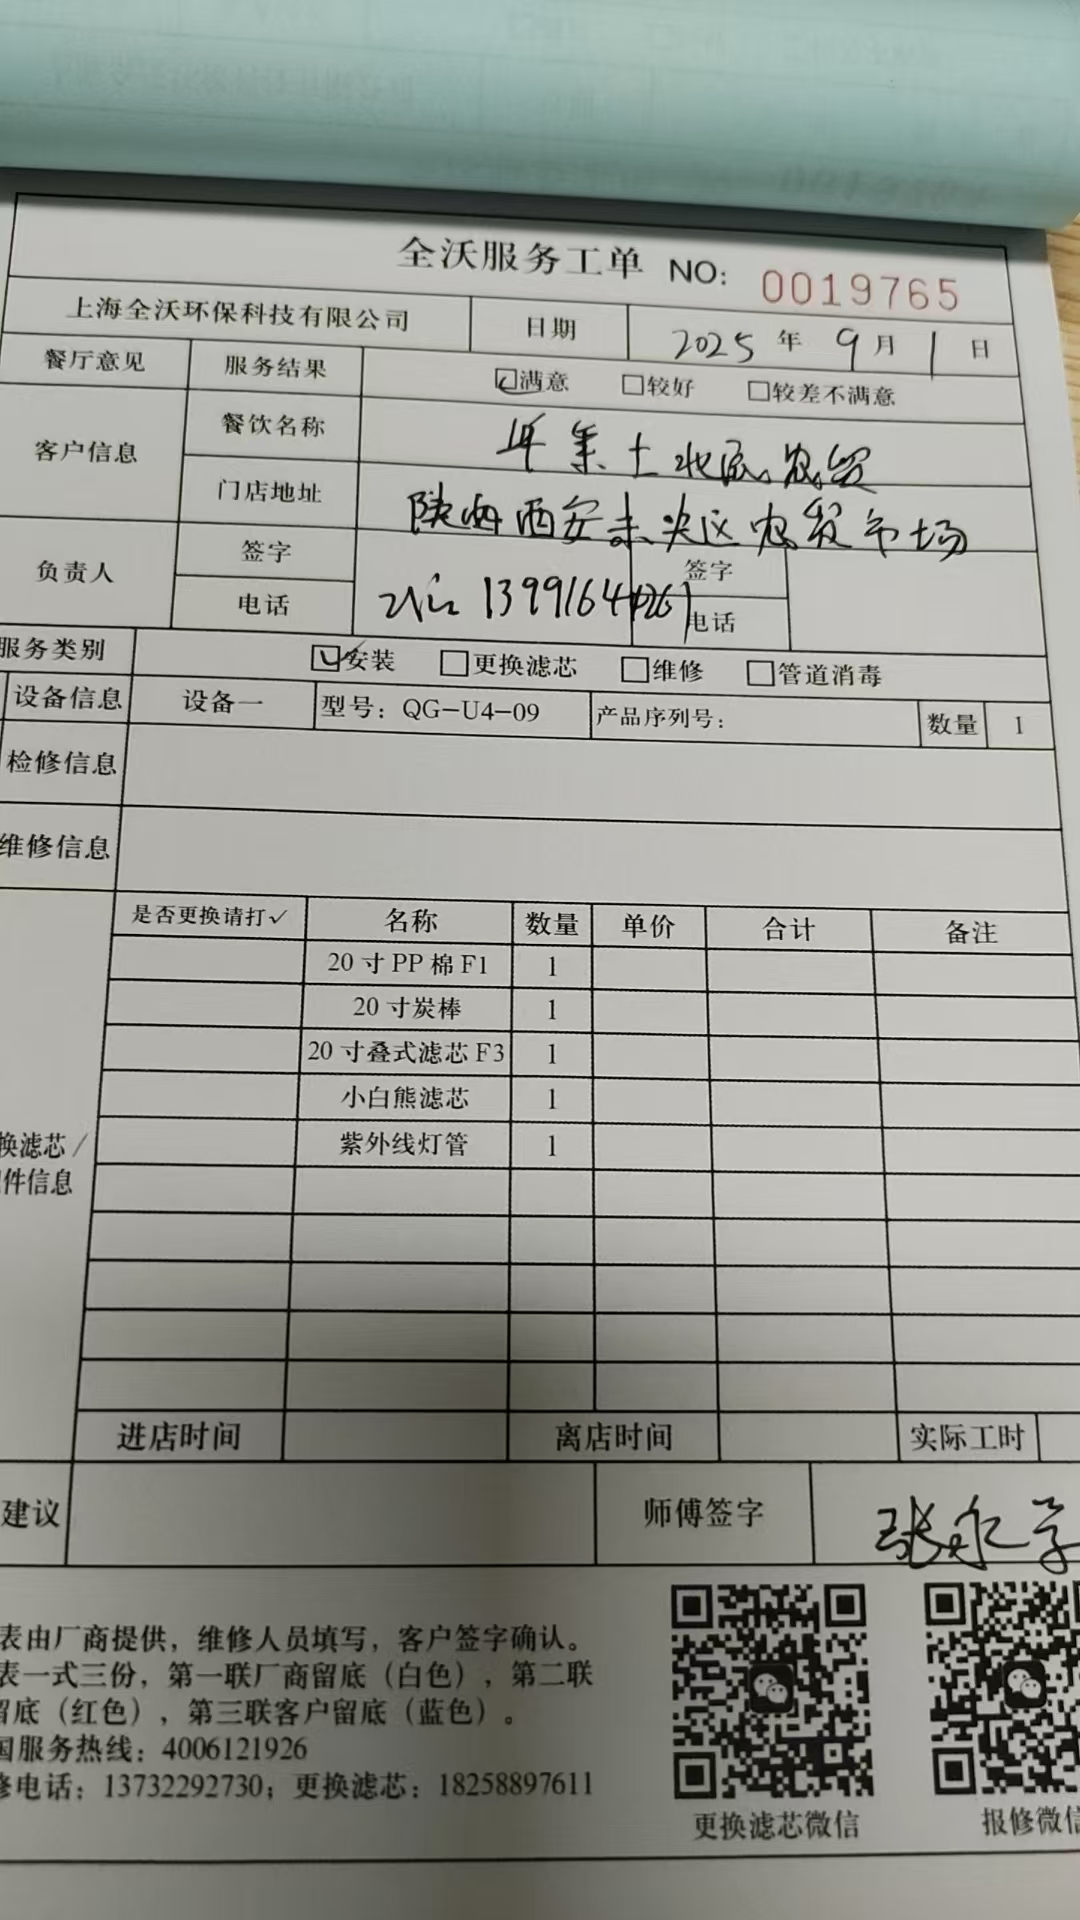 全沃服务工单 NO: 0019765
上海全沃环保科技有限公司 日期 2025年9月1日
餐厅意见 服务结果 ☑满意 □较好 □较差不满意
客户信息 餐饮名称 年集土北底农贸
门店地址 陕西西安未央区农贸市场
负责人 签字 签字
电话 139916441261 电话
服务类别 ☑安装 □更换滤芯 □维修 □管道消毒
设备信息 设备一 型号: QG-U4-09 产品序列号: 数量 1
检修信息
维修信息
是否更换请打✓ 名称 数量 单价 合计 备注
20寸PP棉F1 1
20寸炭棒 1
20寸叠式滤芯F3 1
小白熊滤芯 1
紫外线灯管 1
换滤芯/
件信息
进店时间 离店时间 实际工时
建议 师傅签字 张永学
表由厂商提供，维修人员填写，客户签字确认。
表一式三份，第一联厂商留底（白色），第二联
留底（红色），第三联客户留底（蓝色）。
国服务热线：4006121926
修电话；13732292730；更换滤芯：18258897611
更换滤芯微信 报修微信